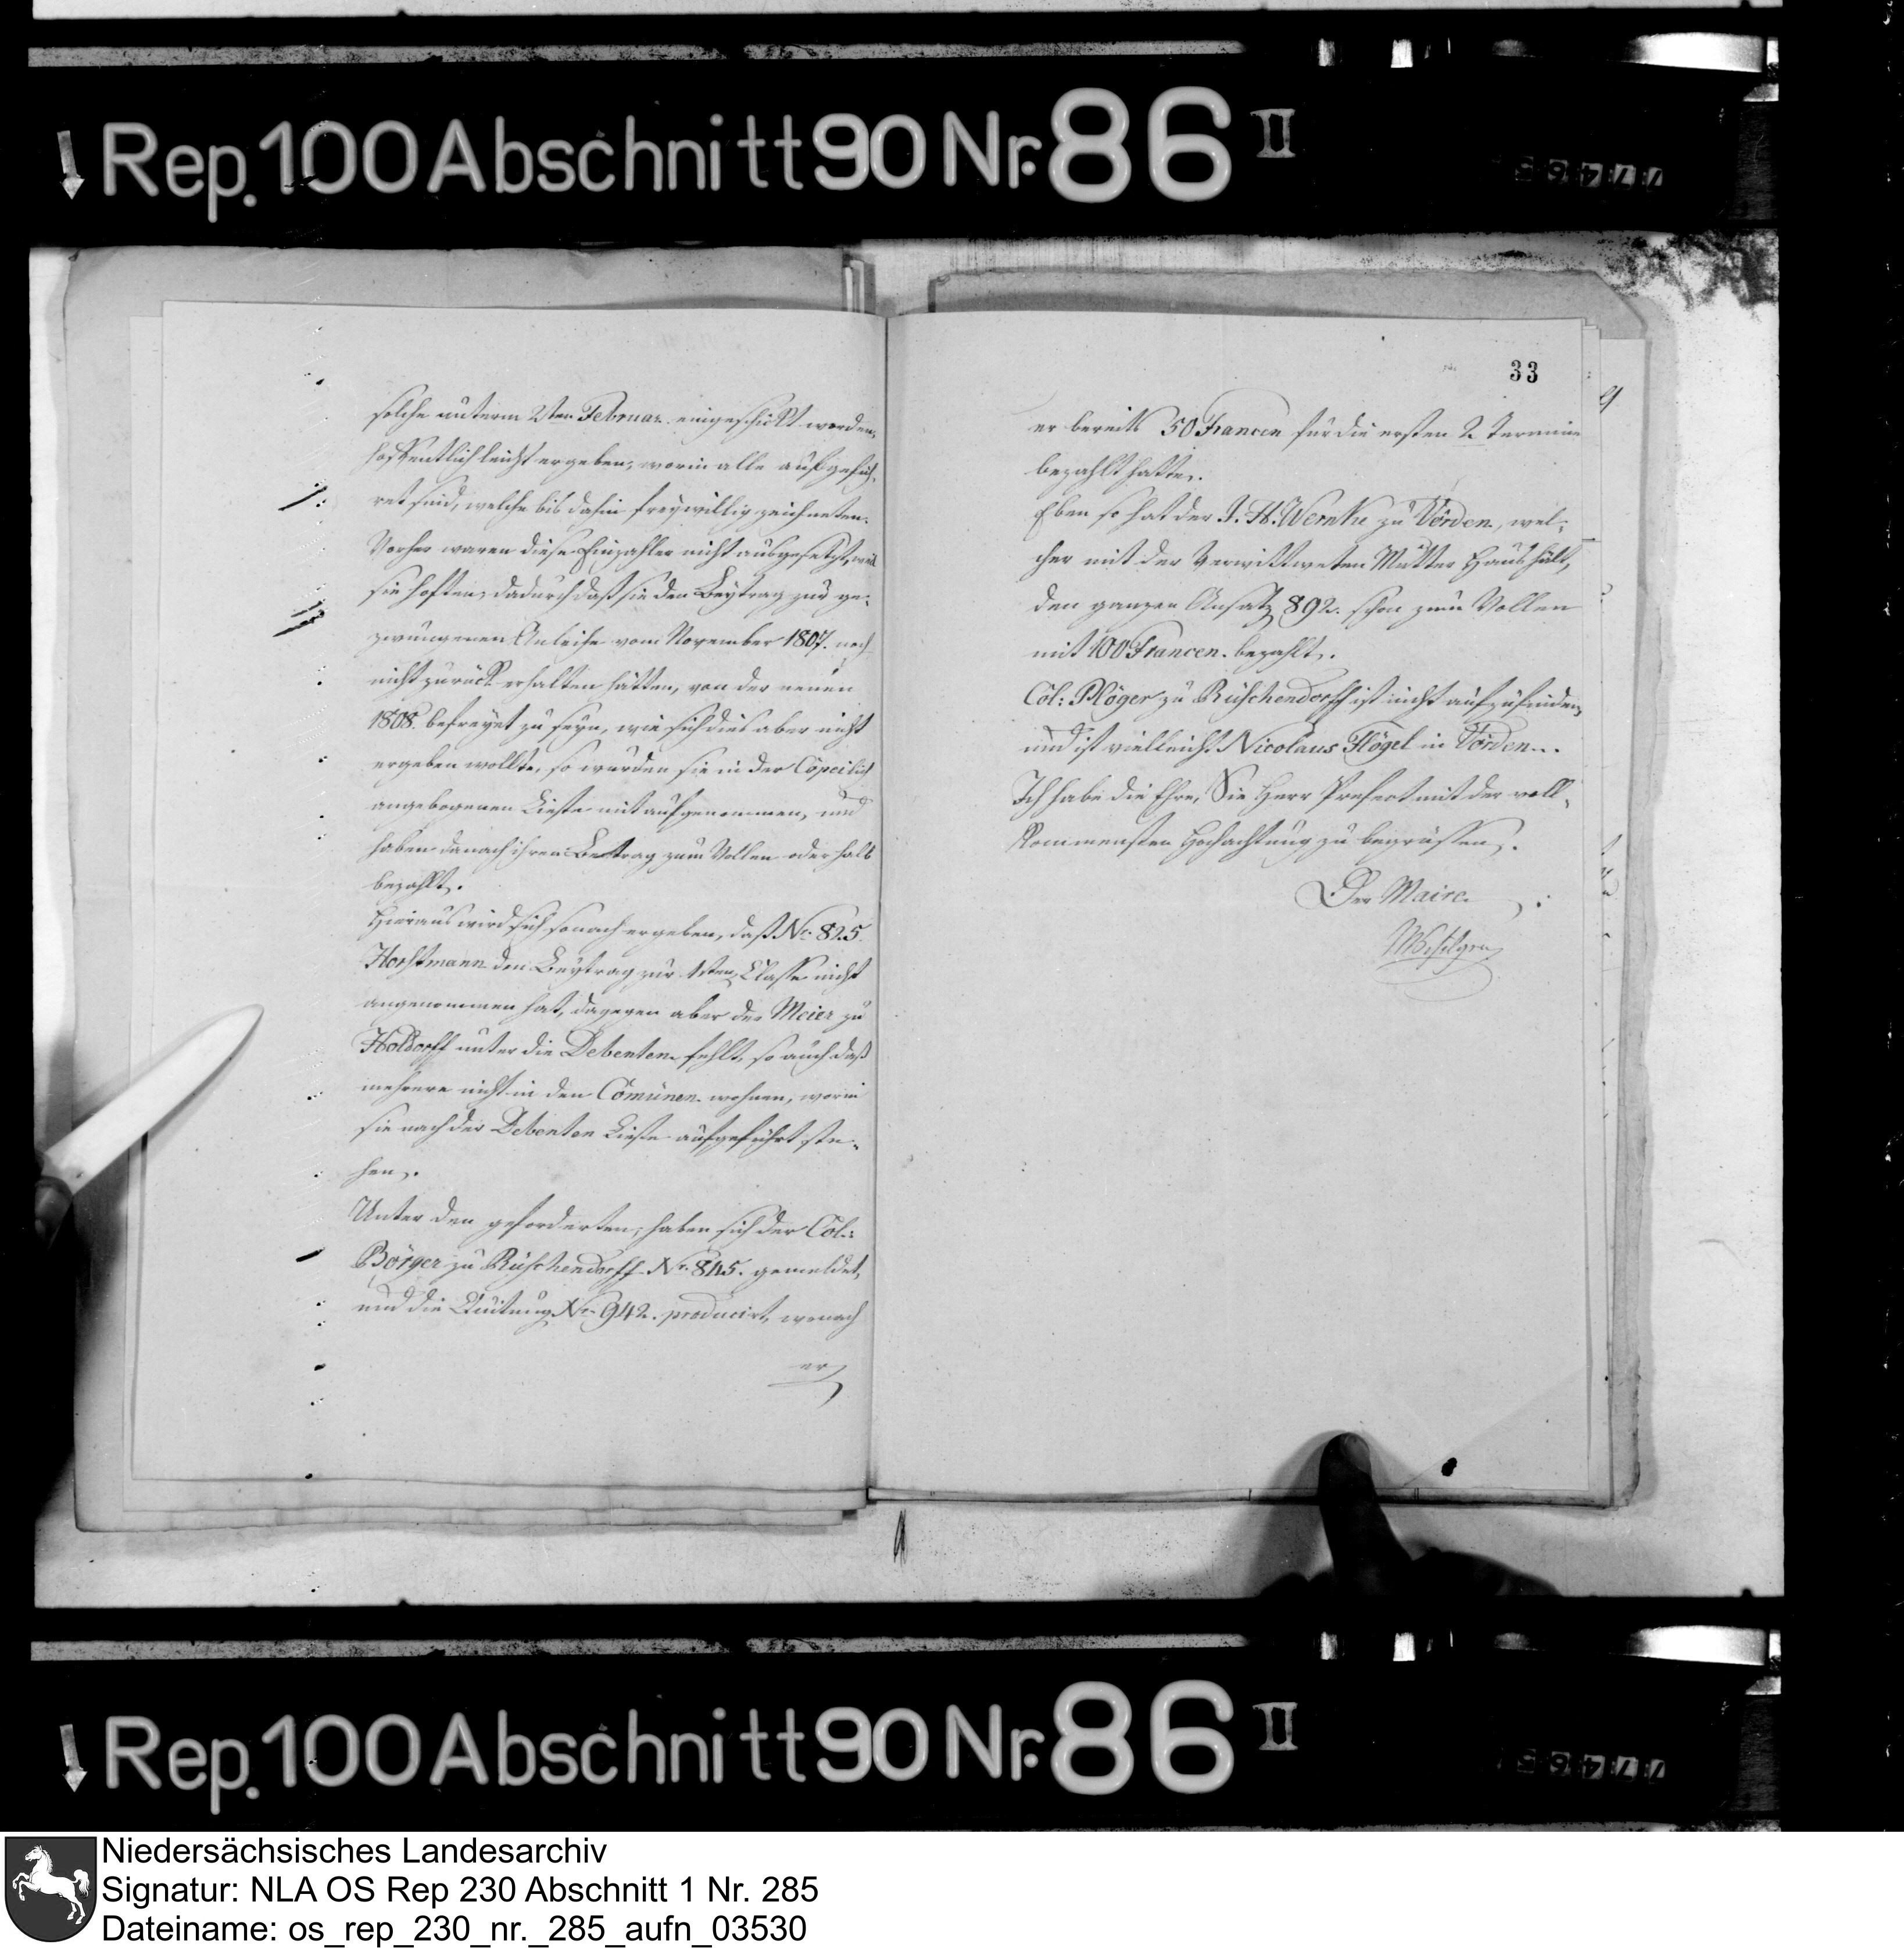 Rep. 100 Abschnitt 90 Nr. 86 II
solche unterm 2ten Februar eingeschickt worden,
hoffentlich leicht ergeben, worin alle aufgefüh-
ret sind, welche bis dahin freywillig zeichneten.
Vorher waren diese Einzahler nicht ausgesetzt, weil
sie hoften, dadurch daß sie den Beytrag zur ge-
zwungenen Anleihe vom November 1807. noch
nicht zurück erhalten hätten, von der neuen
1808. befreyet zu seyn, wie sich dies aber nicht
ergeben wollte, so wurden sie in der
angebogenen Liste mit aufgenommen, und
haben danach ihren Beitrag zum Vollen oder halb
bezahlt.
Hieraus wird sich sonach ergeben, daß No. 825.
Horstmann den Beytrag zur 1sten Classe nicht
angenommen hat, dagegen aber der Meier zu
Holdorff unter die Debenten fehlt, so auch daß
mehrere nicht in den Comünen wohnen, worin
sie nach der Debenten Liste aufgeführt ste-
hen.
Unter den geforderten, haben sich der Col:
Börger zu Rüschendorff No. 845. gemeldet,
und die Quitung No. 942. producirt, wonach
er
33
er bereits 50 Francen für die ersten 2 Termine
bezahlt hatte.
Eben so hat der J. H. Wernke zu Vörden, wel-
cher mit der verwittweten Mutter Haus hält,
den ganzen Ansatz 892. schon zum Vollen
mit 100 Francen bezahlt.
Col: Plöger zu Rüschendorff ist nicht aufzufinden,
und ist vielleicht Nicolaus Flögel in Vörden.
Ich habe die Ehre, Sie Herr Prefect mit der voll-
kommensten Hochachtung zu begrüssen.
Der Maire
Rep. 100 Abschnitt 90 Nr. 86 II
Niedersächsisches Landesarchiv
Signatur: NLA OS Rep 230 Abschnitt 1 Nr. 285
Dateiname: os_rep_230_nr._285_aufn_03530